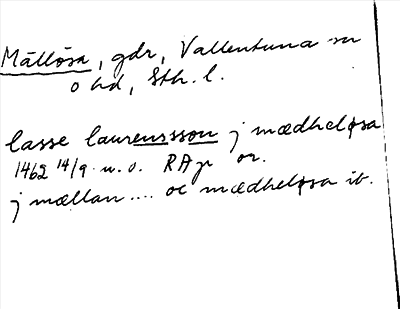 Mällösa, gdr, Vallentuna sn
o hd, Sth. l.
lasse laurensson j mædheløsa
1462 14/9 u.o. RAp or.
j mællan .... oc mædheløsa ib.